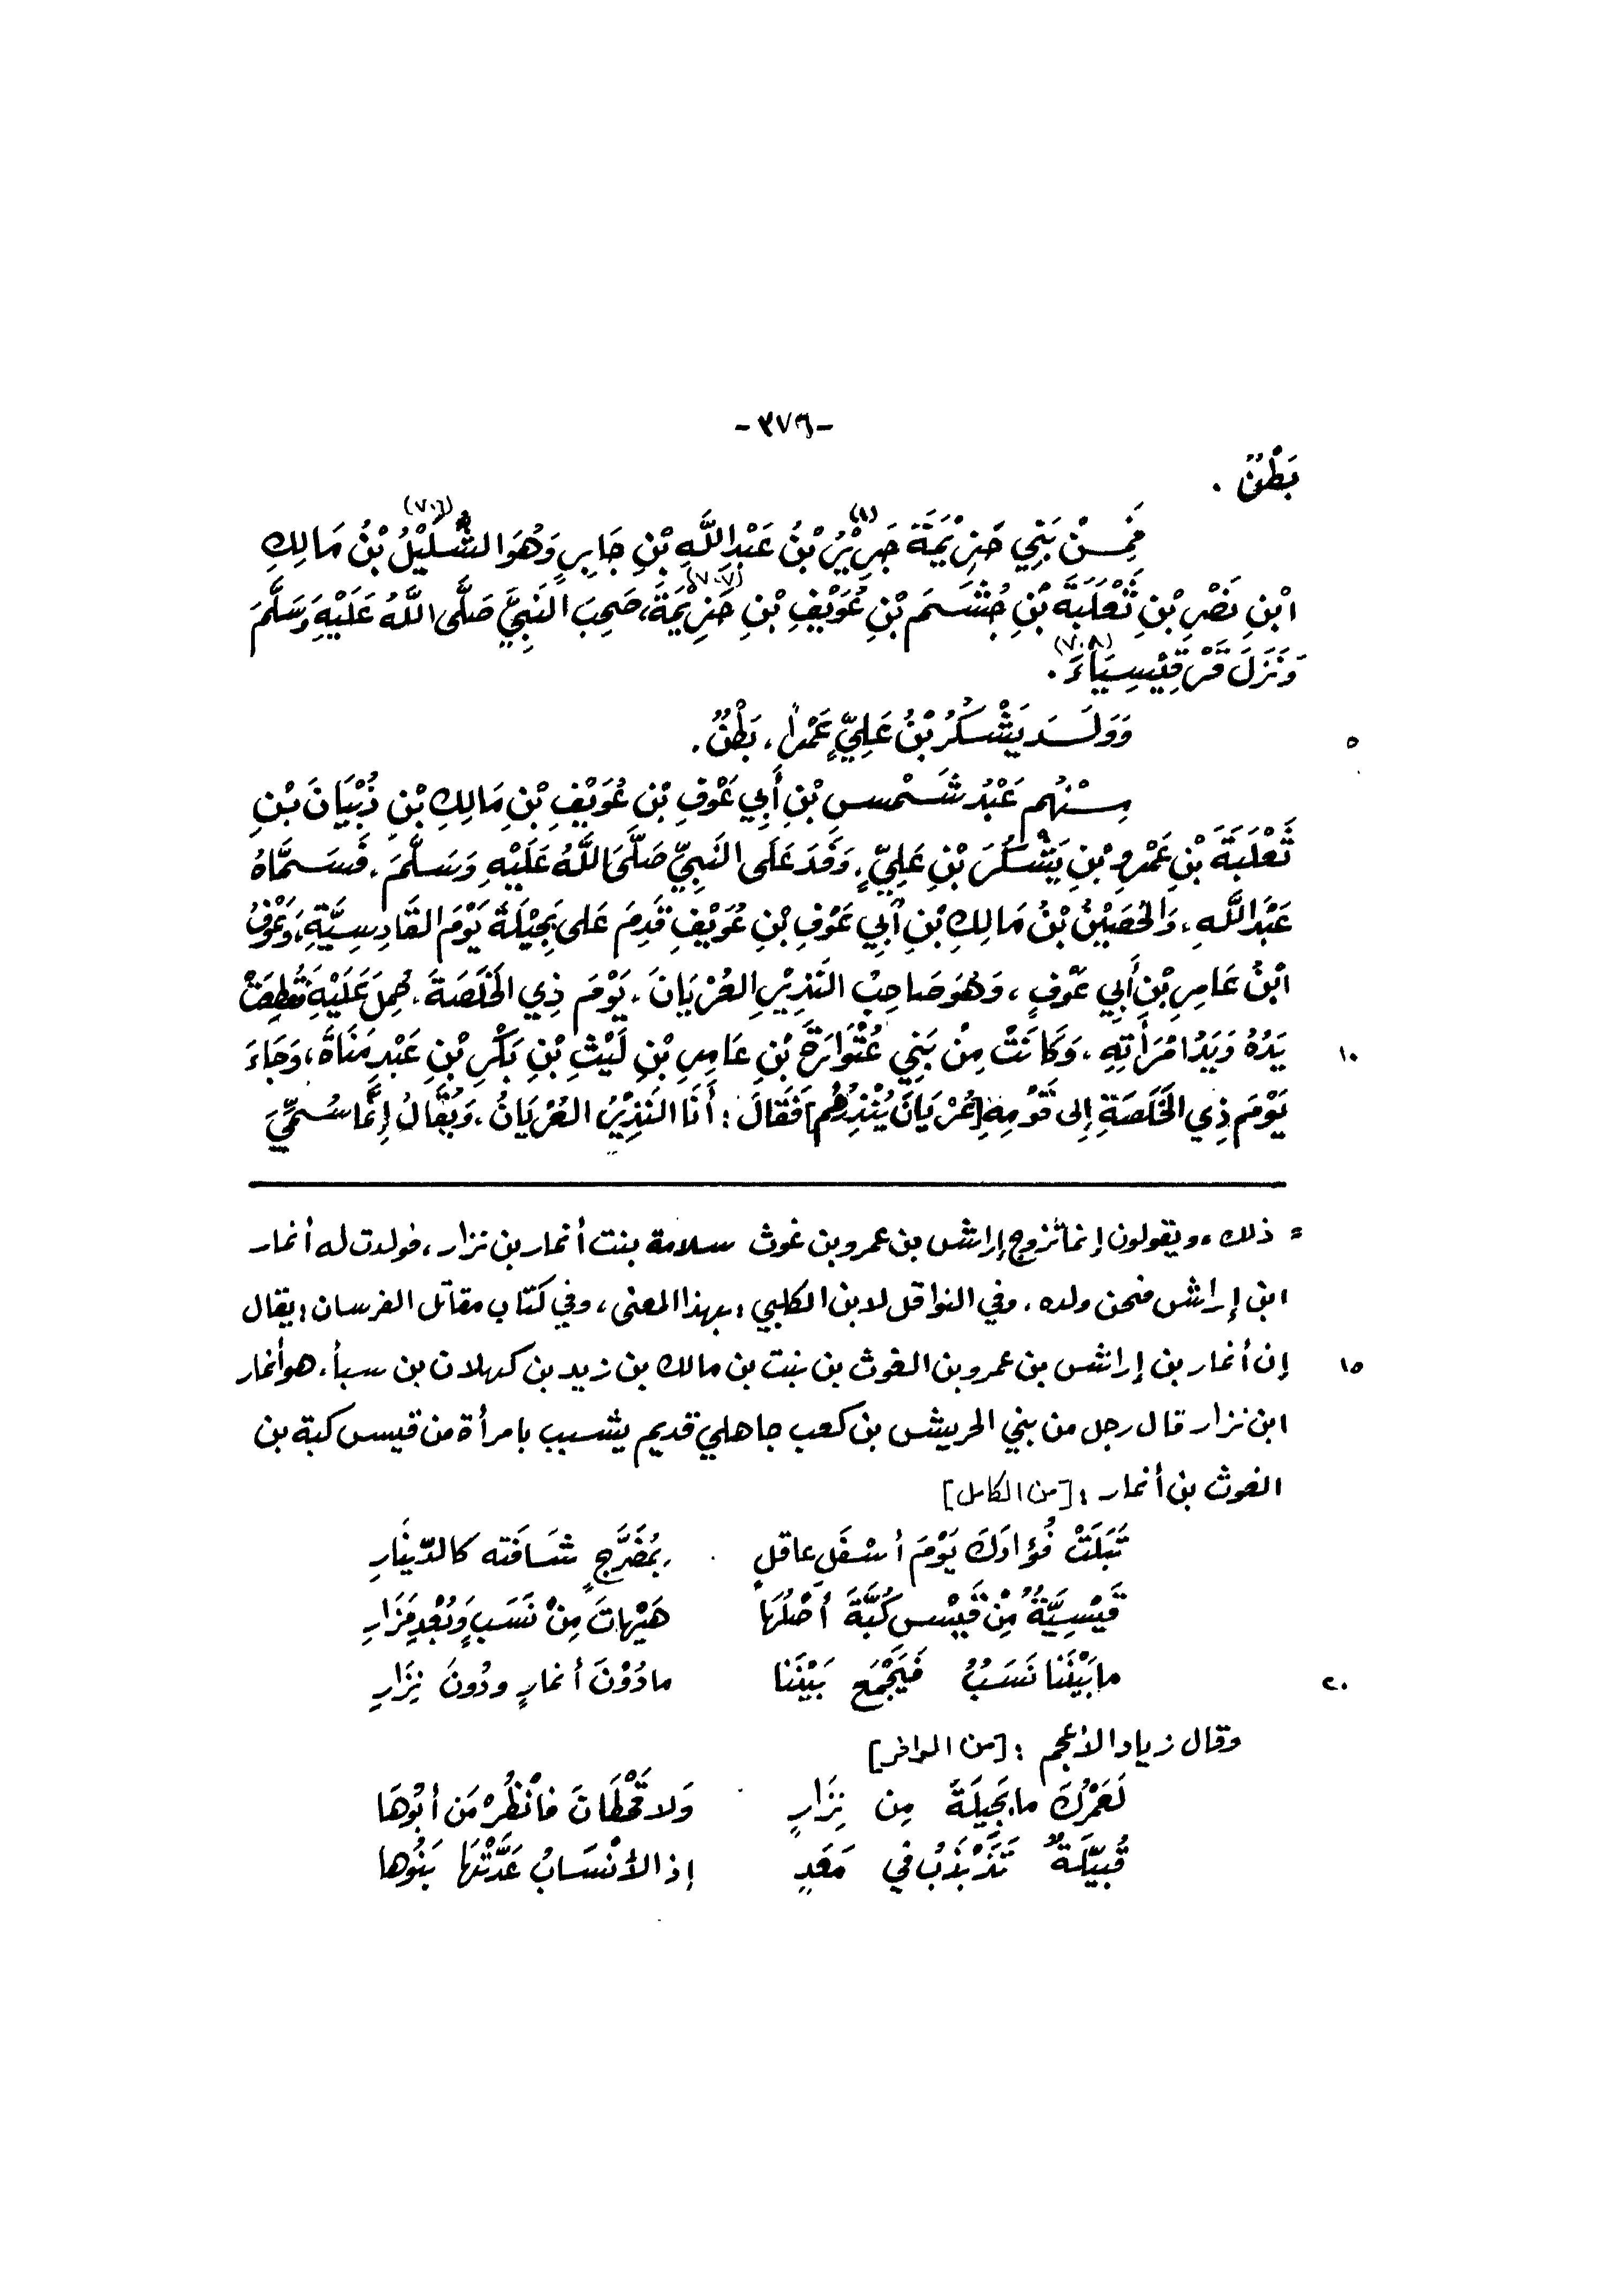 -٣٧٦-
بَطْنٌ .
فَمِنْ بَنِي حَزِيْمَةَ جَرِيْرُ (١) بْنُ عَبْدِ اللَّهِ بْنِ جَابِرٍ وَهُوَ الشَّلِيْلُ (٧٠٦) بْنُ مَالِكِ
ابْنِ نَصْرِ بْنِ ثَعْلَبَةَ بْنِ جُشَمَ بْنِ عُوَيْفِ بْنِ حَزِيْمَةَ (٧٠٧)، صَحِبَ النَبِيَّ صَلَّى اللَّهُ عَلَيْهِ وَسَلَّمَ
وَنَزَلَ قَرْقِيْسِيَاءَ (٧٠٨) .
وَوَلَدَ يَشْكُرُ بْنُ عَلِيٍّ عَمْراً، بَطْنٌ . ٥
مِنْهُم عَبْدُ شَمْسِ بْنِ أَبِي عَوْفِ بْنِ عُوَيْفِ بْنِ مَالِكِ بْنِ ذُبْيَانَ بْنِ
ثَعْلَبَةَ بْنِ عَمْرِو بْنِ يَشْكُرَ بْنِ عَلِيٍّ، وَفَدَ عَلَى النَبِيِّ صَلَّى اللَّهُ عَلَيْهِ وَسَلَّمَ، فَسَمَّاهُ
عَبْدَ اللَّهِ، وَالحُصَيْنُ بْنُ مَالِكِ بْنِ أَبِي عَوْفِ بْنِ عُوَيْفِ قَدِمَ عَلى بَجِيْلَةَ يَوْمَ القَادِسِيَّةِ، وَعَوْفُ
ابْنُ عَامِرِ بْنِ أَبِي عَوْفٍ، وَهُوَ صَاحِبُ النَذِيْرِ العُرْيَانَ، يَوْمَ ذِي الخَلَصَةَ، حُمِلَ عَلَيْهِ فَقُطِعَتْ
يَدُهُ وَيَدُ امْرَأَتِهِ، وَكَانَتْ مِنْ بَنِي عُتْوَارَةَ بْنِ عَامِرِ بْنِ لَيْثِ بْنِ بَكْرِ بْنِ عَبْدِ مَنَاةَ، وَجَاءَ ١٠
يَوْمَ ذِي الخَلَصَةِ إِلى قَوْمِهِ [عُرْيَانَ يُنْذِرُهُم] فَقَالَ : أَنَا النَذِيْرُ العُرْيَانُ، وَيُقَالُ إِنَّمَا سُمِّيَ
= ذلك، ويقولون إنما تزوج إراش بن عمرو بن غوث سلامة بنت أنمار بن نزار، فولدت له أنمار
ابن إراش فنحن ولده، وفي النواقل لابن الكلبي : بهذا المعنى، وفي كتاب مقاتل الفرسان : يقال
إن أنمار بن إراش بن عمرو بن الغوث بن نبت بن مالك بن زيد بن كهلان بن سبأ، هو أنمار ١٥
ابن نزار قال رجل من بني الحريش بن كعب جاهلي قديم يشبب بامرأة من قيس كبة بن
الغوث بن أنمار : [من الكامل]
تَبَلَتْ فُؤادَكَ يَوْمَ أسْفَلِ عاقلٍ بمُضَرَّجٍ شَافَته كالدّينَارِ
قَيْسِيَّةٌ مِّنْ قَيْس كُبَّةَ أصْلُهَا هَيْهاتَ مِنْ نَسَبٍ وَبُعْدِ مَزَارِ
ما بَيْنَنا نَسَبٌ فَيَجْمَعَ بَيْنَنا مادُوْنَ أنمارٍ ودُونَ نِزَارِ ٢٠
وقال زياد الأعجم : [من الوافر]
لَعَمْرُكَ ما بَجِيلَةَ مِن نِزَارٍ وَلا قَحْطَانَ فانْظُرْ مَن أبُوْهَا
قُبيِّلَةٌ تَذَبْذَبُ في مَعَدٍ إذا الأنْسَابُ عَدَّتْهَا بَنُوها